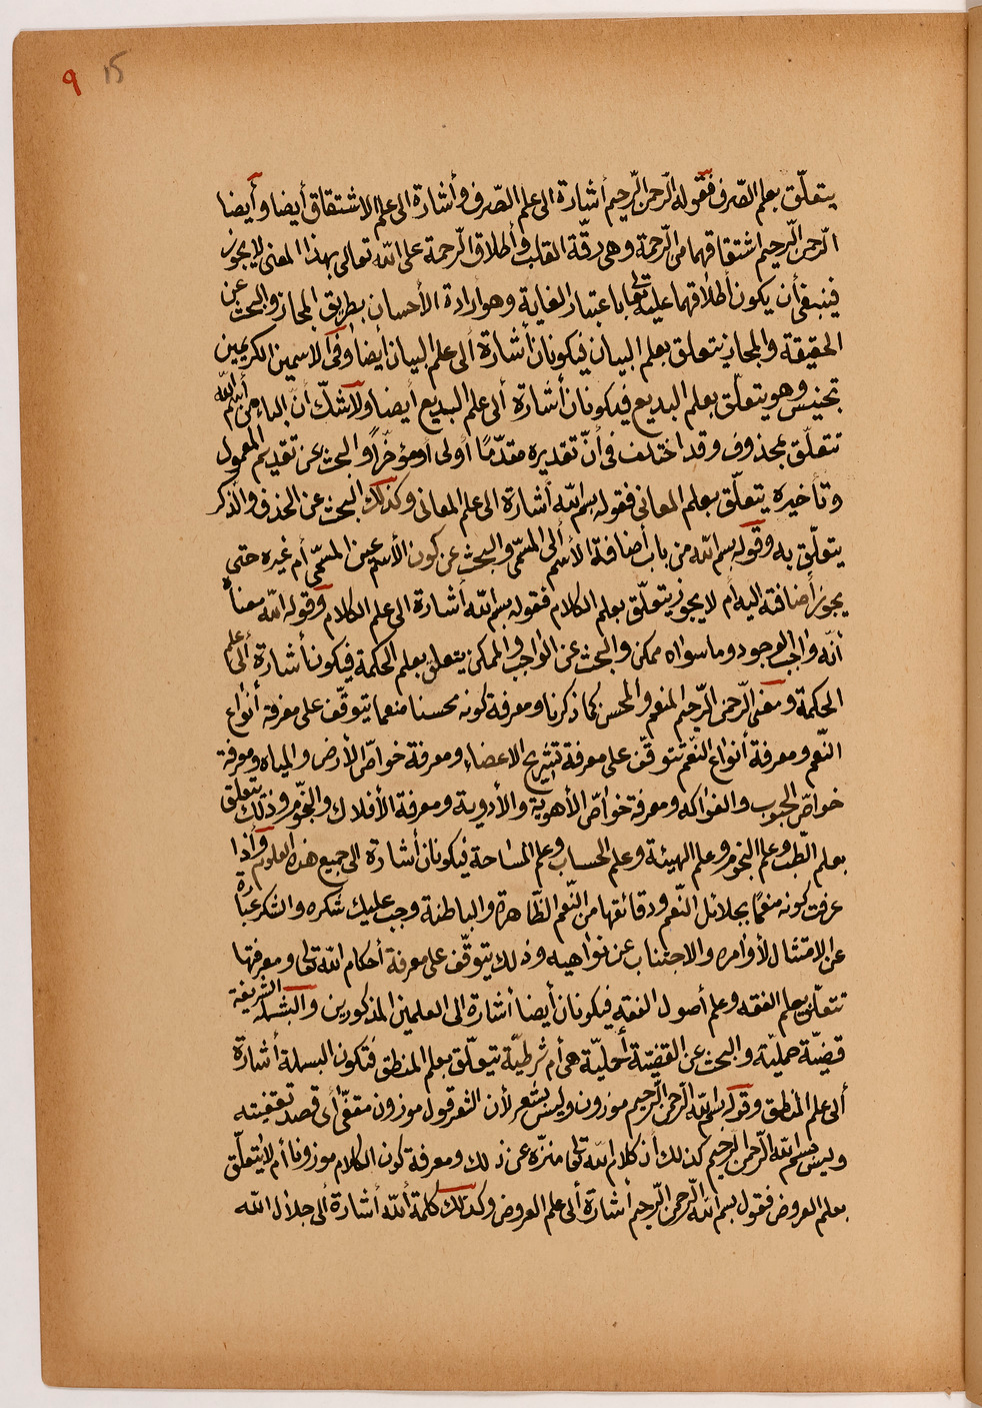 ٩ ١٥
يتعلّق بعلم الصّرف فقوله الرّحمن الرّحيم أشارة الى علم الصّرف وأشارة الى علم الاشتقاق أيضا وأيضا
الرّحمن الرّحيم اشتقاقهما من الرّحمة وهى رقّة القلب وأطلاق الرّحمة على اللّه تعالى بهذا المعنى لايجوز
فينبغى أن يكون أطلاقهما عليه تعالى باعتبار الغاية وهو ارادة الأحسان بطريق المجاز والبحث عن
الحقيقة والمجاز يتعلق بعلم البيان فيكونان أشارة ألى علم البيان أيضا وفى الاسمين الكريمين
تجنيس وهو يتعلّق بعلم البديع فيكونان أشارة ألى علم البديع أيضا ولاشكّ أنّ الباء من أسم اللّه
تتعلّق بمحذوف وقد اختلف فى أنّ تقديره مقدّمًا أولى أو مؤخّرًا والبحث عن تقديم المعمول
وتأخيره يتعلّق بعلم المعانى فقوله بسم اللّه أشارة الى علم المعانى وكذلك البحث عن الحذف والذكر
يتعلّق به وقوله بسم اللّه من باب أضافة الأسم ألى المسمّى والبحث عن كون الأسم عين المسمّى أم غيره حتى
يجوز أضافته اليه أم لا يجوز يتعلّق بعلم الكلام فقوله بسم اللّه أشارة الى علم الكلام وقوله اللّه معناه
أنّه واجب الوجود وما سواه ممكن والبحث عن الواجب والممكن يتعلق بعلم الحكمة فيكون أشارة ألى علم
الحكمة ومعنى الرّحمن الرّحيم المنعم والمحسن كما ذكرنا ومعرفة كونه محسنا منعما يتوقّف على معرفة أنواع
النّعم ومعرفة أنواع النّعم تتوقّف على معرفة تشريح الاعضاء ومعرفة خواصّ الأرض والمياه ومعرفة
خواصّ الحبوب والفواكه ومعرفة خواصّ الأهوية والأدوية ومعرفة الأفلاك والنّجوم وذلك يتعلّق
بعلم الطّب وعلم النجوم وعلم الهيئة وعلم الحساب وعلم المساحة فيكونان أشارة الى جميع هذه العلوم وأذا
عرفت كونه منعمًا بجلائل النّعم ودقائقها من النّعم الظّاهرة والباطنة وجب عليك شكره والشكر عبارة
عن الامتثال لأوامره والاجتناب عن نواهيه وذلك يتوقّف على معرفة أحكام اللّه تعالى ومعرفتها
تتعلّق بعلم الفقه وعلم أصول الفقه فيكونان أيضا أشارة الى العلمين المذكورين والبسملة الشريفة
قضيّة حمليّة والبحث عن القضيّة أحمليّة هى أم شرطيّة يتعلّق بعلم المنطق فتكون البسملة أشارة
ألى علم المنطق وقوله بسم اللّه الرّحمن الرّحيم موزون وليس بشعر لأن الشعر قول موزون مقفّى أى قصد تقفيته
وليس بسم اللّه الرّحمن الرّحيم كذلك أذ كلام اللّه تعالى منزّه عن ذلك ومعرفة كون الكلام موزونا أم لا يتعلّق
بعلم العروض فقول بسم اللّه الرّحمن الرّحيم أشارة ألى علم العروض وكذلك كلمة أللّه أشارة ألى جلال اللّه